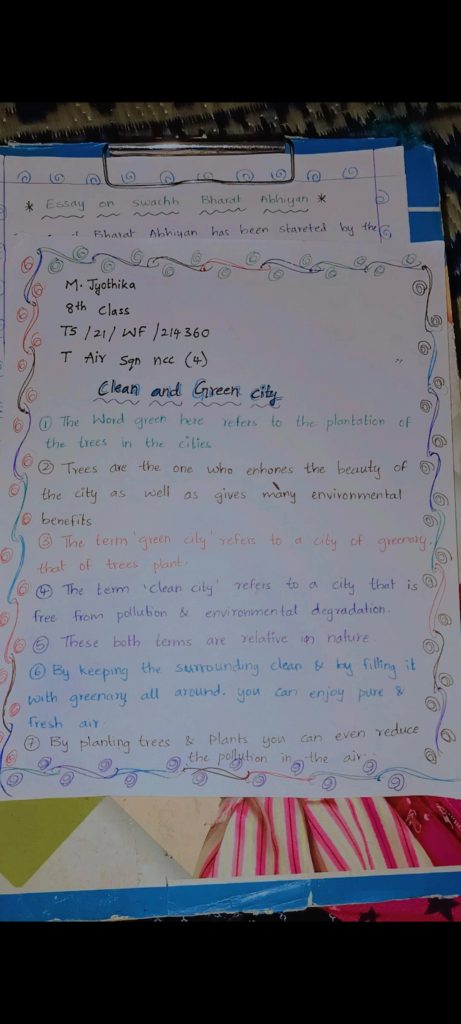 * Essay on swachh Bharat Abhiyan *
Bharat Abhiyan has been stareted by the
M. Jyothika
8th Class
TS /21/ WF /214360
T Air Sqn ncc (4)
Clean and Green city
① The Word green here refers to the plantation of
the trees in the cities
② Trees are the one who enhones the beauty of
the city as well as gives many environmental
benefits
③ The term 'green city' refers to a city of greenary.
that of trees plant.
④ The term 'clean city' refers to a city that is
free from pollution & environmental degradation.
⑤ These both terms are relative in nature.
⑥ By keeping the surrounding clean & by filling it
with greenary all around. you can enjoy pure &
fresh air.
⑦ By planting trees & Plants you can even reduce
the pollution in the air...